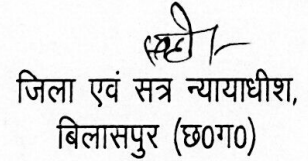 सही/-
जिला एवं सत्र न्यायाधीश,
बिलासपुर (छ0ग0)